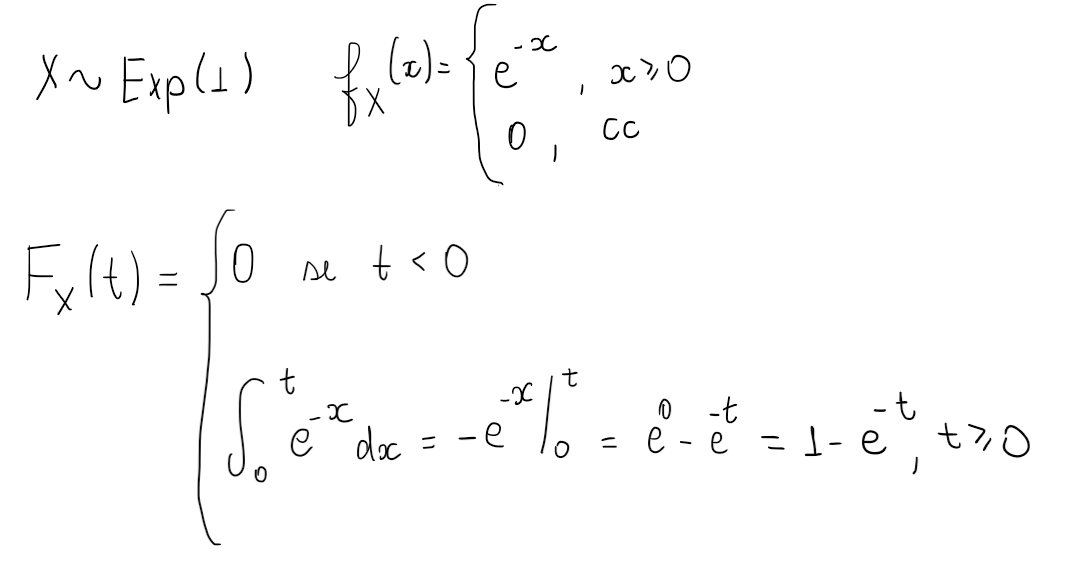 X ~ Exp(1) f_X(x) = { e^{-x}, x ⩾ 0
0, cc
F_X(t) = { 0 se t < 0
∫_0^t e^{-x} dx = -e^{-x} |_0^t = e^0 - e^{-t} = 1 - e^{-t}, t ⩾ 0